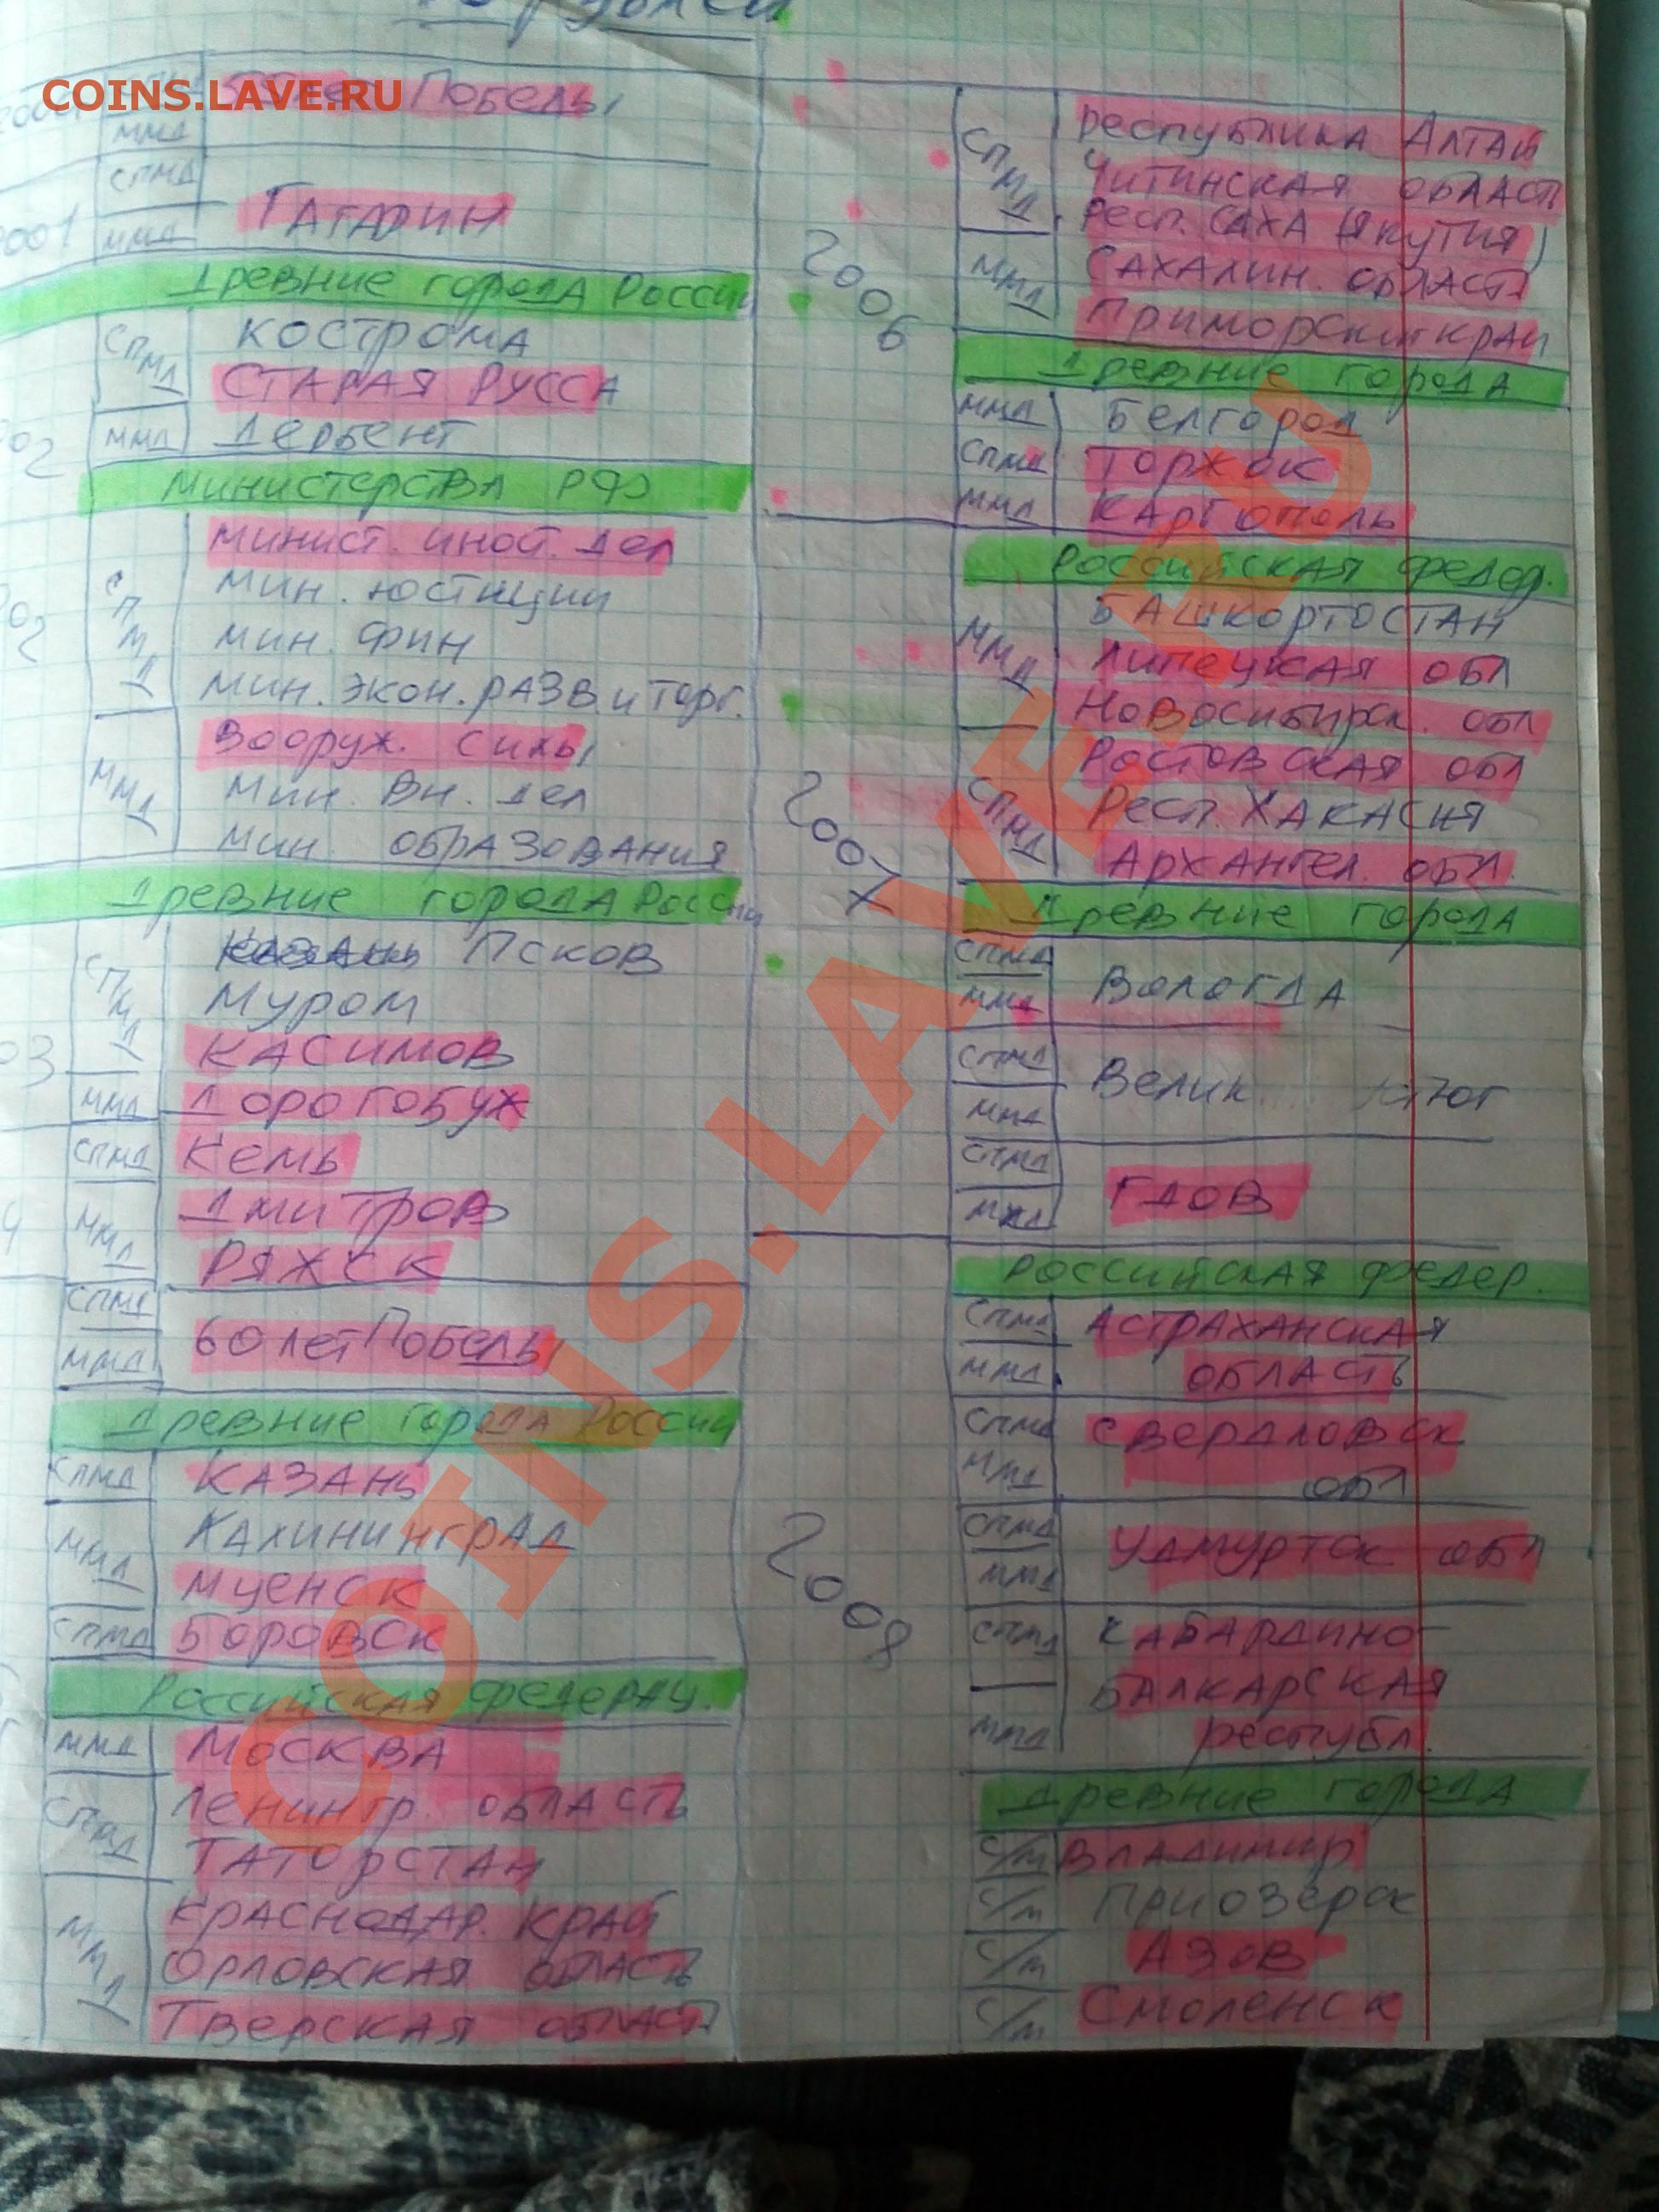 COINS.LAVE.RU
Победы
ММД
СПМД
ММД
Гагарин
Древние города России
СПМД
Кострома
Старая Русса
ММД
Дербент
Министерства РФ
СПМД
Минист. иност. дел
Мин. юстиции
Мин. фин
Мин. экон. разв. и торг.
ММД
Вооруж. силы
Мин. вн. дел
Мин. образования
Древние города России
СПМД
Псков
Муром
Касимов
ММД
Дорогобуж
СПМД
Кемь
ММД
Дмитров
Ряжск
СПМД
ММД
60 лет Победы
Древние города России
СПМД
Казань
ММД
Калининград
Мценск
СПМД
Боровск
Российская федерац.
ММД
Москва
СПМД
Ленингр. область
Таторстан
ММД
Краснодар. край
Орловская область
Тверская област
2006
СПМД
республика Алтай
Читинская област
ММД
Респ. Саха (Якутия)
Сахалин. област
Приморский край
Древние города
ММД Белгород
СПМД Торжок
ММД Каргополь
2007
Российская федер.
ММД
Башкортостан
Липецкая обл
Новосибирск. обл
СПМД
Ростовская обл
Респ. Хакасия
Архангел. обл.
Древние города
СПМД
ММД
Вологда
СПМД
ММД
Велик. Устюг
СПМД
ММД
Гдов
2008
Российская федер.
СПМД
ММД
Астраханская
область
СПМД
ММД
Свердловск
обл
СПМД
ММД
Удмуртск обл
СПМД
ММД
Кабардино-
Балкарская
республ.
Древние города
с/м Владимир
с/м Приозерск
с/м Азов
с/м Смоленск
COINS.LAVE.RU